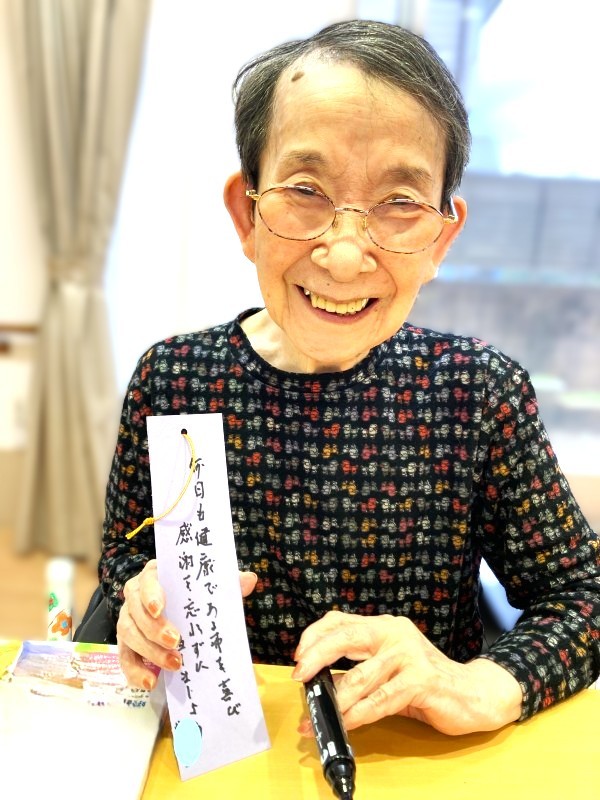 今日も健康である事を喜び
感謝を忘れずに
ましょう